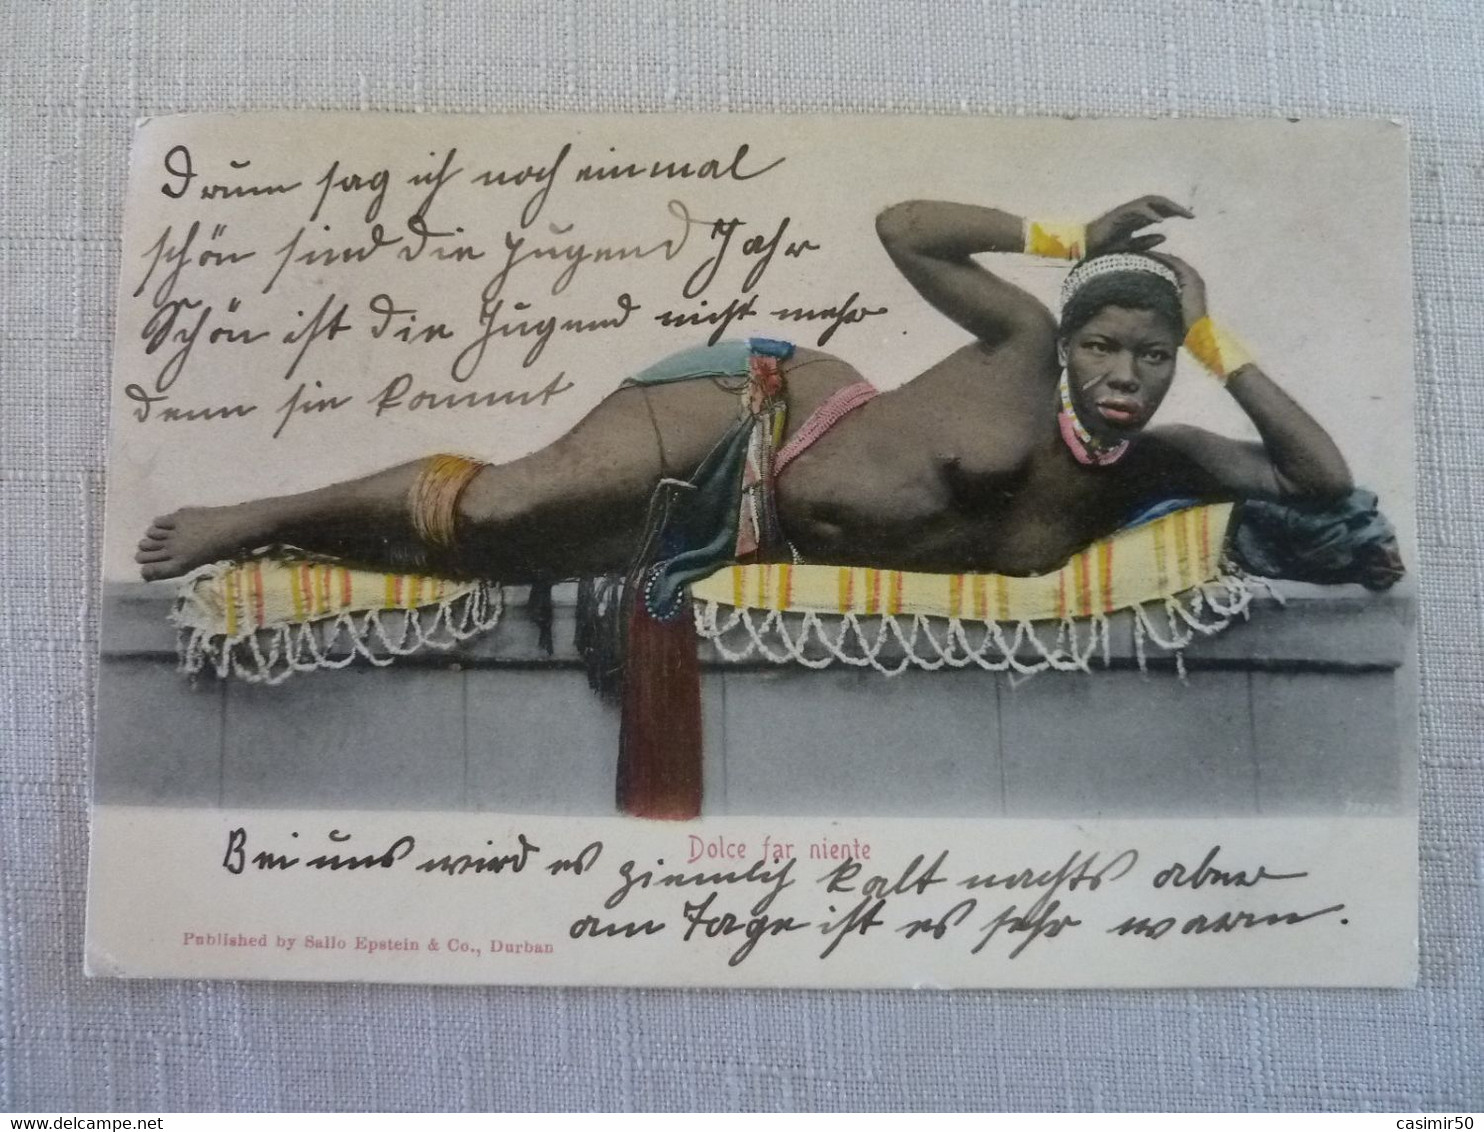 Drum sag ich noch einmal
schön sind die Jugend Jahr
Schön ist die Jugend nicht mehr
denn sie kommt
Dolce far niente
Bei uns wird es ziemlich kalt nachts aber
am Tage ist es sehr warm.
Published by Sallo Epstein & Co., Durban
casimir50